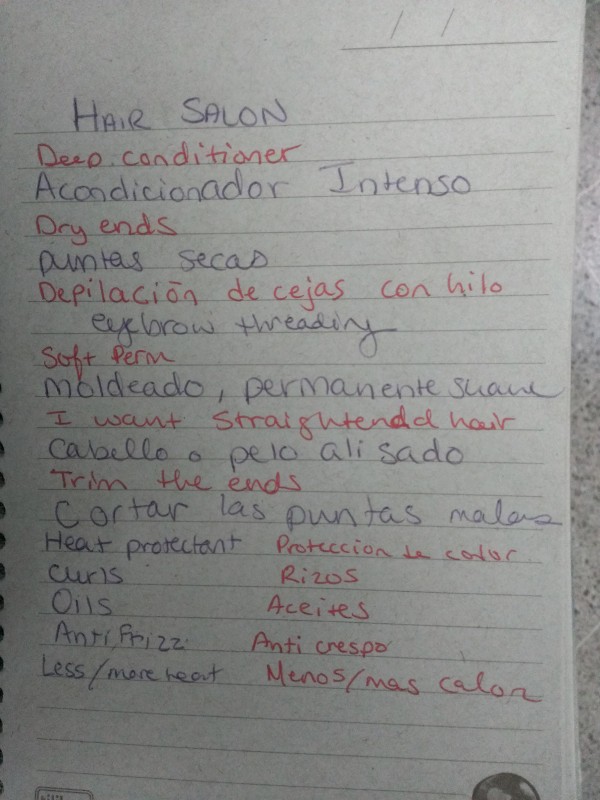 / /
HAIR SALON
Deep conditioner
Acondicionador Intenso
Dry ends
puntas secas
Depilación de cejas con hilo
eyebrow threading
Soft Perm
moldeado, permanente suave
I want straightendd hair
Cabello o pelo alisado
Trim the ends
Cortar las puntas malas
Heat protectant Proteccion de calor
Curls Rizos
Oils Aceites
Anti Frizz Anti crespo
Less/more heat Menos/mas calor